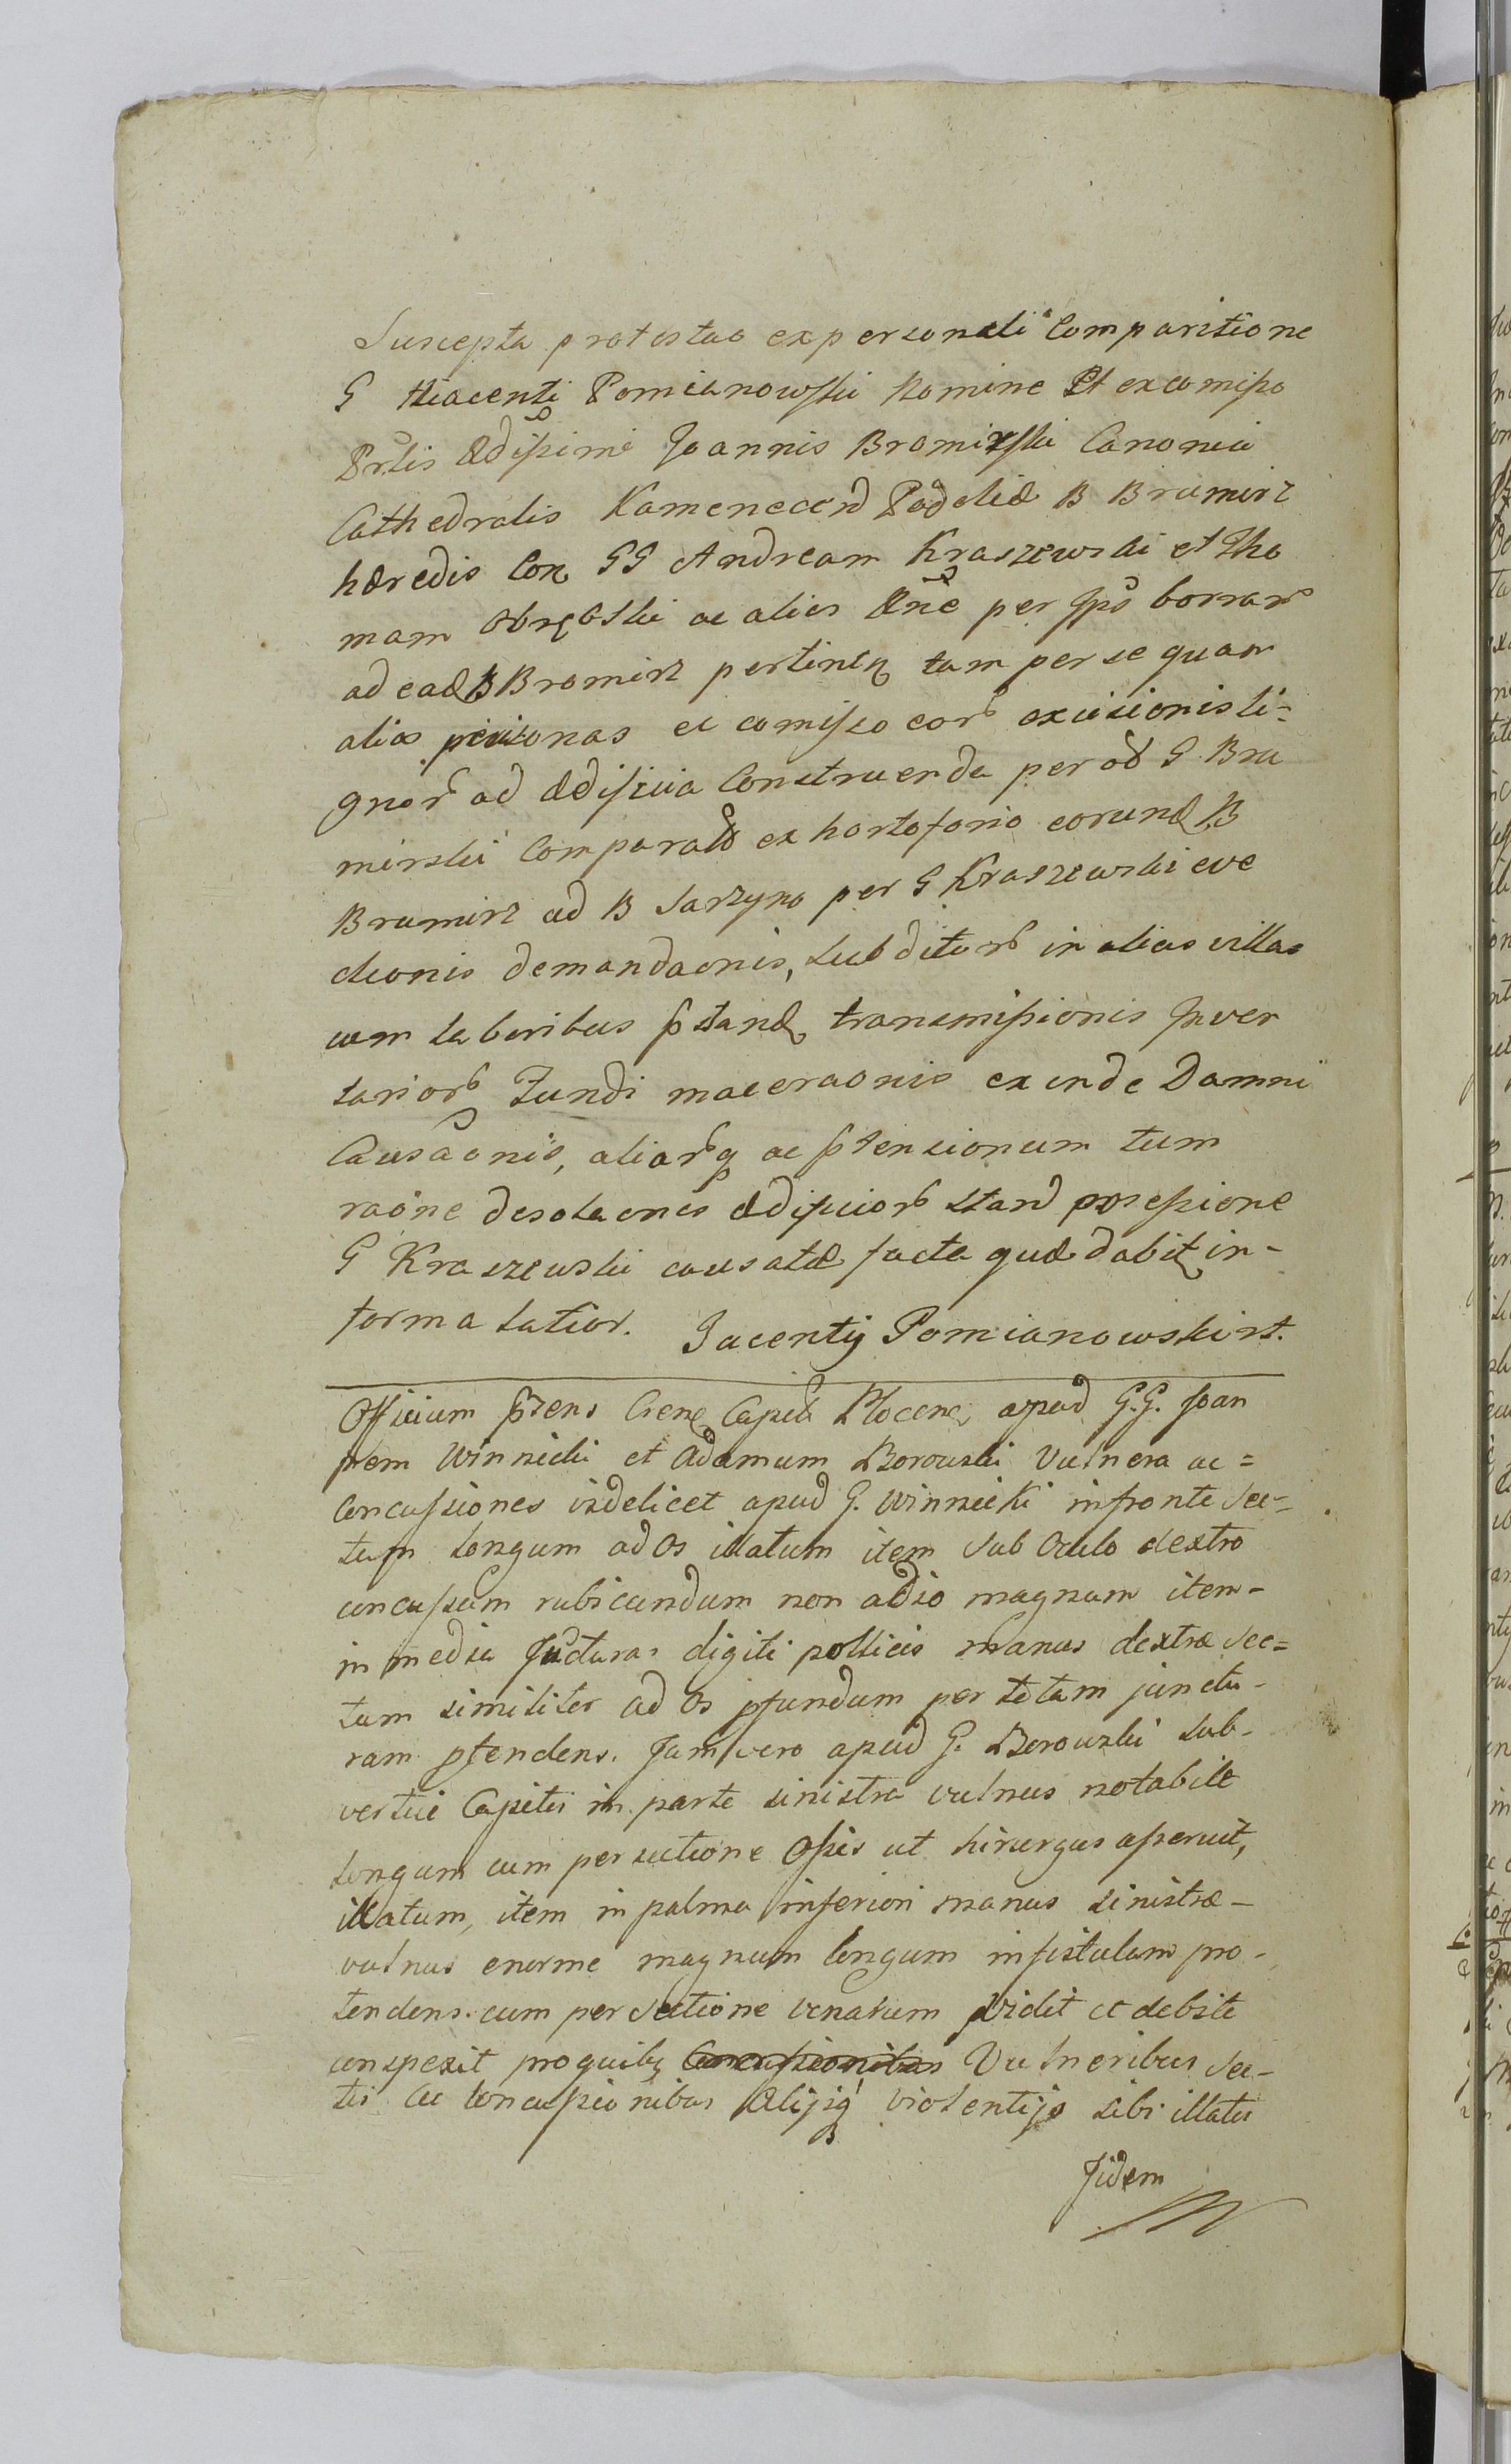 Suscepta protestao ex personali Comparitione
G Hiacenti Pomianowski Nomine Et ex comisso
Prltis Adissimi Joannis Bromirski Canonici
Cathedralis Kamenecen Podoliæ B Bromirz
hæredis Con GG Andream Kraszewski et Tho
mam Obrębski ac alios
ad ead B Bromirz pertinen tam per se quam
alias personas ex comisso eor excisionis li-
gnor ad ædificia Construenda per od G Bro
mirski Comparator ex hortoforio eorund B
Bromirz ad B Sarzyno per G Kraszewski eve
ctionis demandaonis, subditor in alias villas
cum laboribus pstand transmissionis Inven
tarior Fundi maceraonis exinde Damni
Causaonis, aliarq ac ptensionum tum
raone desolaonis ædificior stand possessione
G Kraszewski causatæ facta quæ dabit in-
forma latior. Jacenty Pomianowski mt.
Officium przens Crene Capit Plocen apud G.G. Joan
nem Winnicki et Adamum Borowski Vulnera ac =
Concussiones videlicet apud G. Winnicki in fronte sec-
tum longum ad os illatum item sub Oculo dextro
concussum rubicundum non adio magnum item -
in media Juctura digiti pollicis manus dextræ sec=
tum similiter ad os pfundum per totam junctu-
ram ptendens. Jam vero apud G. Borowski sub-
vertice Capitis in parte sinistra vulnus notabile
longum cum persectione Ossis ut hirurgus asseruit,
illatum, item in palma inferiori manus sinistræ -
vulnus enorme magnum longum in fistulam pro-
tendens cum persectione venarum vidit et debite
conspexit pro quibq Concussionibus Vulneribus sec-
tis ac concussionibus Alijsq violentijs sibi illatis
Jidem